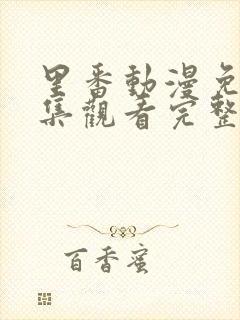 里番動漫免
集觀看完整
百香蜜